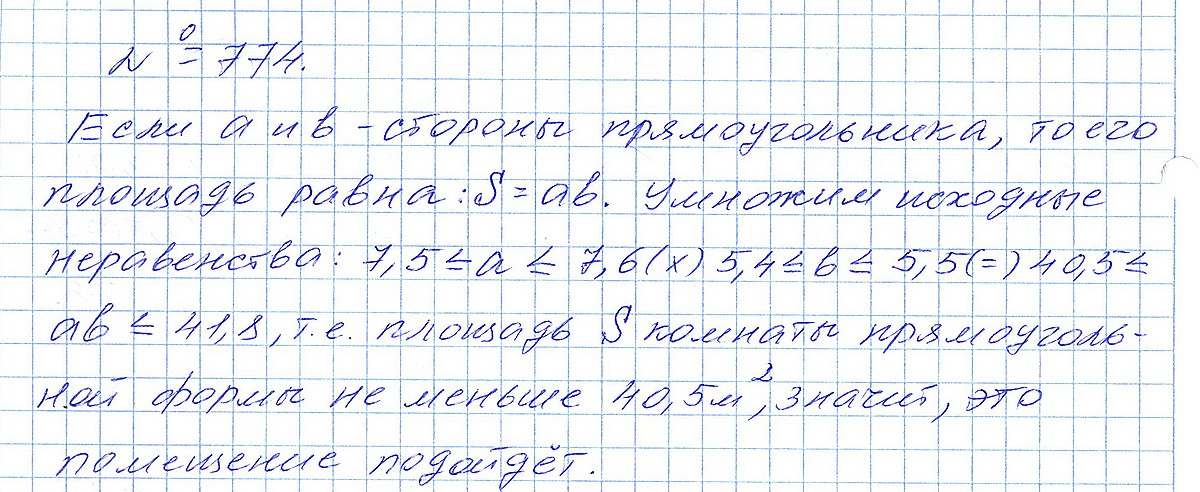 № 774.
Если a и b - стороны прямоугольника, то его
площадь равна: S = ab. Умножим исходные
неравенства: 7,5 ≤ a ≤ 7,6 (x) 5,4 ≤ b ≤ 5,5 (=) 40,5 ≤
ab ≤ 41,8, т.е. площадь S комнаты прямоуголь-
ной формы не меньше 40,5 м², значит, это
помещение подойдёт.